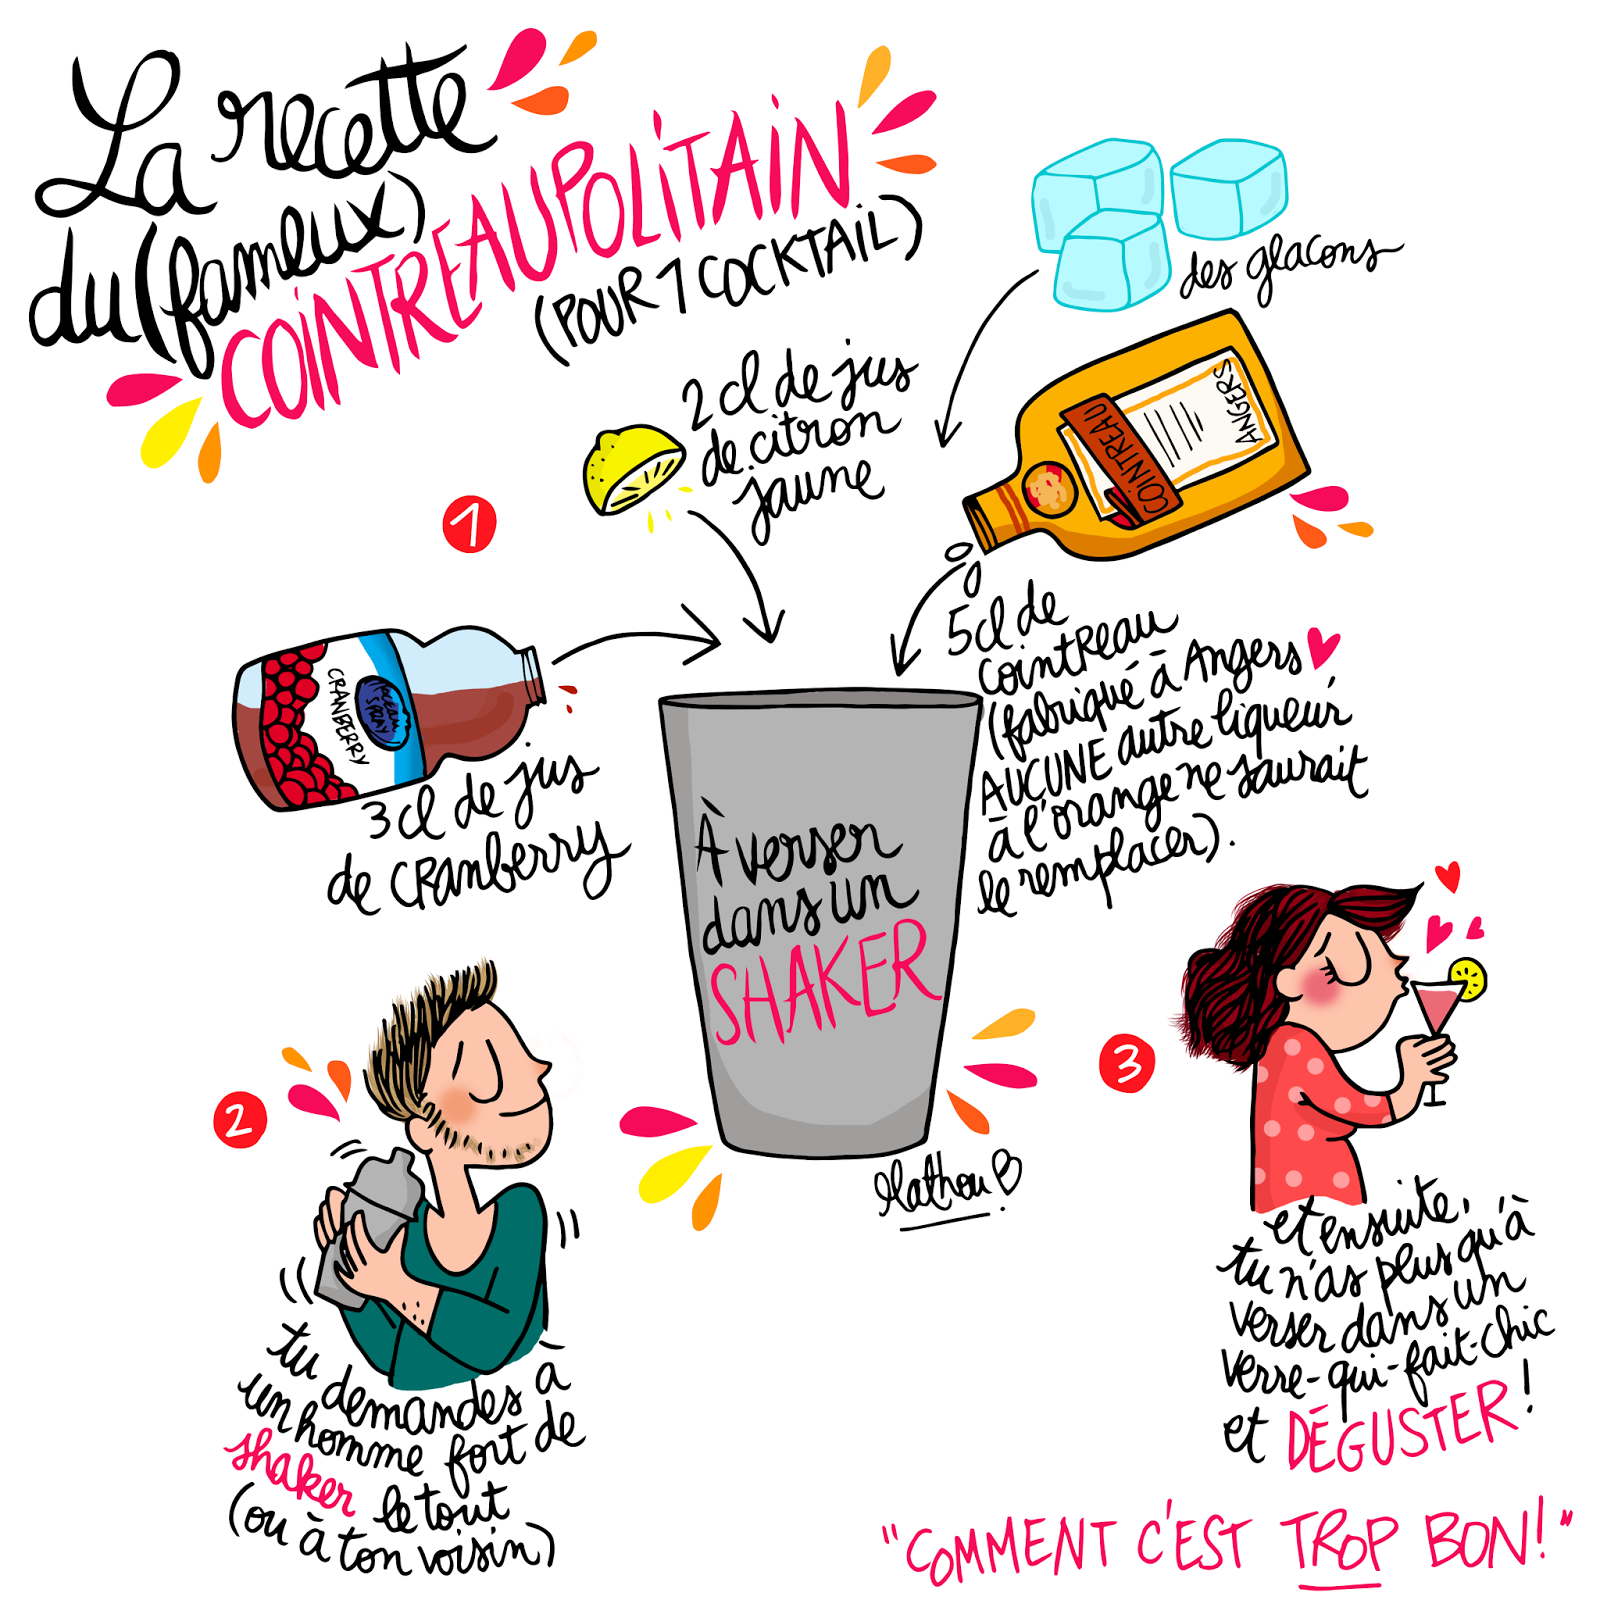 La recette
du (fameux)
COINTREAUPOLITAIN
(POUR 1 COCKTAIL)
des glacons
2 cl de jus
de citron
jaune
1
COINTREAU
ANGERS
5cl de
cointreau
(fabriqué à Angers
AUCUNE autre liqueur
à l'orange ne saurait
le remplacer).
CRANBERRY
Ocean
SPRAY
3 cl de jus
de CRANberry
À verser
dans un
SHAKER
Mathou
2
tu demandes à
un homme fort de
shaker le tout
(ou à ton voisin)
3
et ensuite,
tu n'as plus qu'à
verser dans un
verre-qui-fait-chic
et DÉGUSTER!
"COMMENT C'EST TROP BON!"